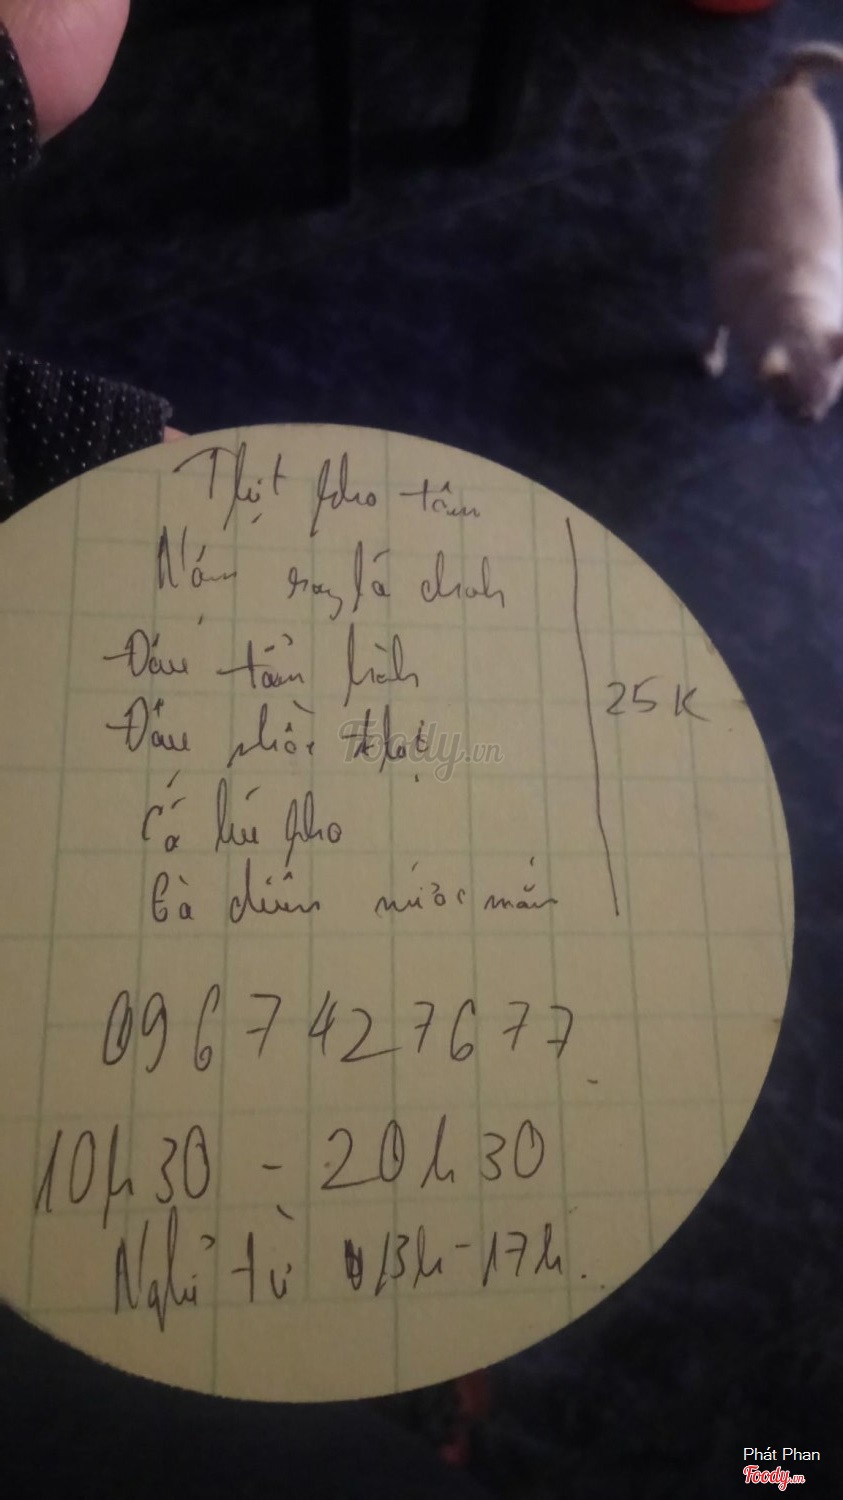 Thịt kho tàu
Nấm xay lá chanh
Đậu tẩm hành
Đậu nhồi thịt
Cá hú kho
Gà chiên nước mắm
25K
0967427677
10h30 - 20h30
Nghỉ từ 13h-17h.
Foody.vn
Phát Phan
Foody.vn